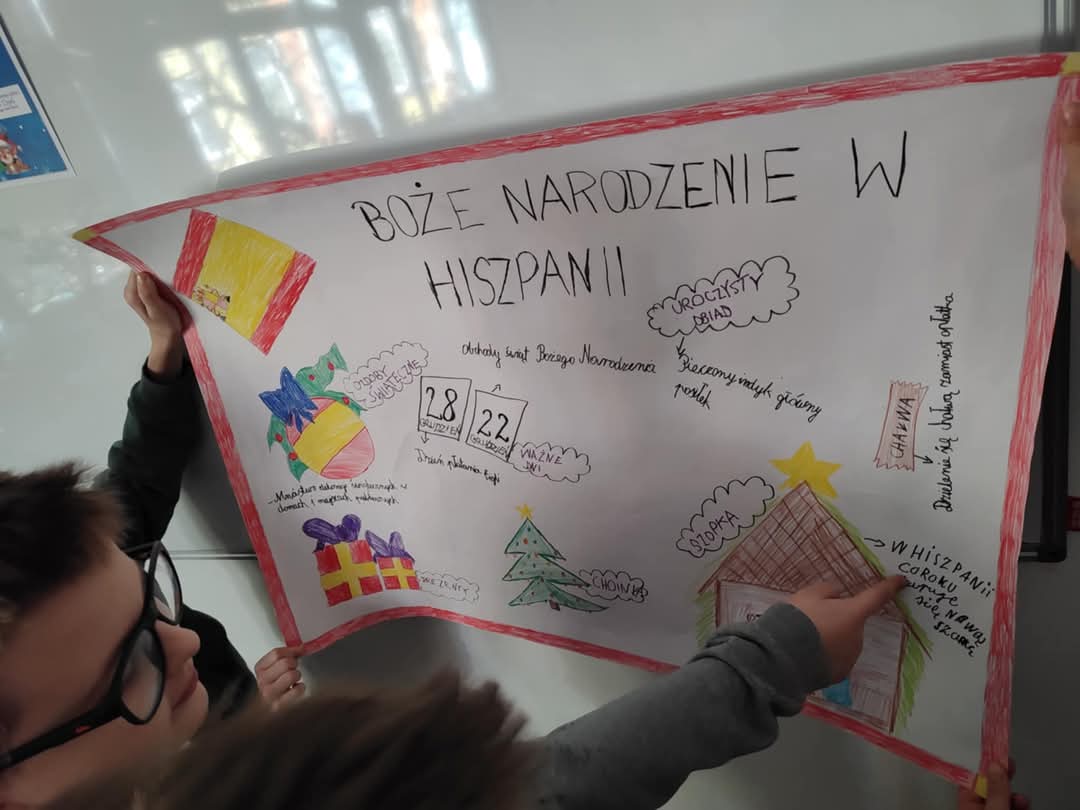 BOŻE NARODZENIE W
HISZPANII
UROCZYSTY
OBIAD
Pieczony indyk główny
posiłek
obchody świąt Bożego Narodzenia
OZDOBY
ŚWIĄTECZNE
28
GRUDZIEŃ
22
GRUDZIEŃ
WAŻNE
DNI
Dzień płatania
w
domach i miejscach publicznych
PREZENTY
CHOINKA
SZOPKA
CHAŁWA
Dzielenie się chałwą zamiast opłatka
W HISZPANII
CO ROKU
KUPUJE
SIĘ NOWĄ
SZOPKĘ